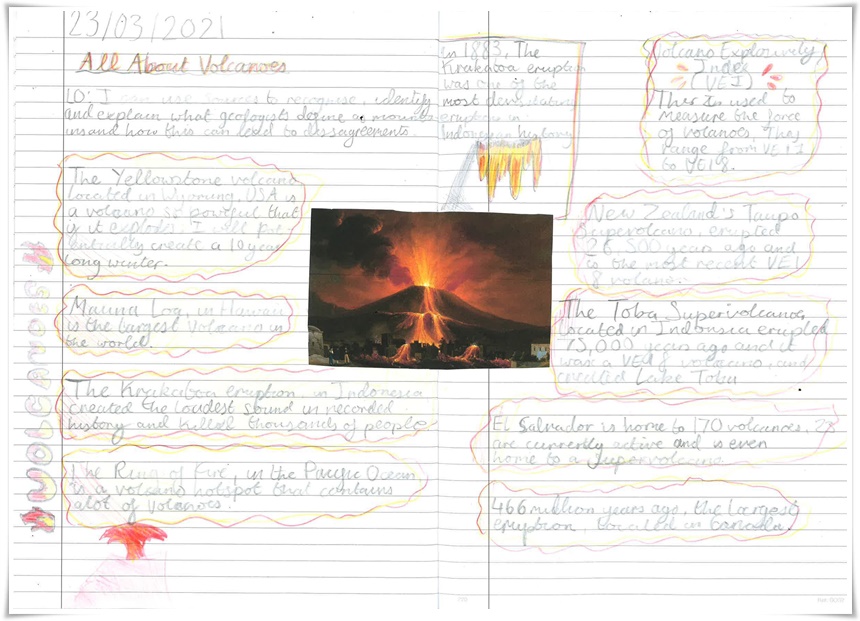 23/03/2021
All About Volcanoes
LO: I can use sources to recognise, identify
and explain what geologists define as
and how this can lead to dissagreements
The Yellowstone volcano
located in Wyoming, USA is
a volcano so powerful that
if it explods, I will
create a 10 year
long winter.
Mauna Loa, in Hawaii
is the largest Volcano in
the world.
The Krakatoa eruption, in Indonesia
created the loudest sound in recorded
history and killed thousands of people
The Ring of Fire, in the Pacific Ocean
is a volcano hotspot that contains
alot of volcanoes.
VOLCANOES
in 1883, The
Krakatoa eruption
was one of the
most devistating
eruptions in
Indonesian history
Volcano Explosively
Index
(VEI)
This is used to
measure the force
of volanoes. They
range from VEI 1
to VEI 8.
New Zealand's Taupo
Supervolcano, erupted
26,500 years ago and
is the most recent VEI
8 volcano.
The Toba Supervolcanoe
located in Indonsia erupted
75,000 years ago and it
was a VEI 8 volcano, and
created Lake Toba
El Salvador is home to 170 volcanoes, 23
are currently active and is even
home to a Supervolcano
466 million years ago, the largest
eruption, located in Canada.